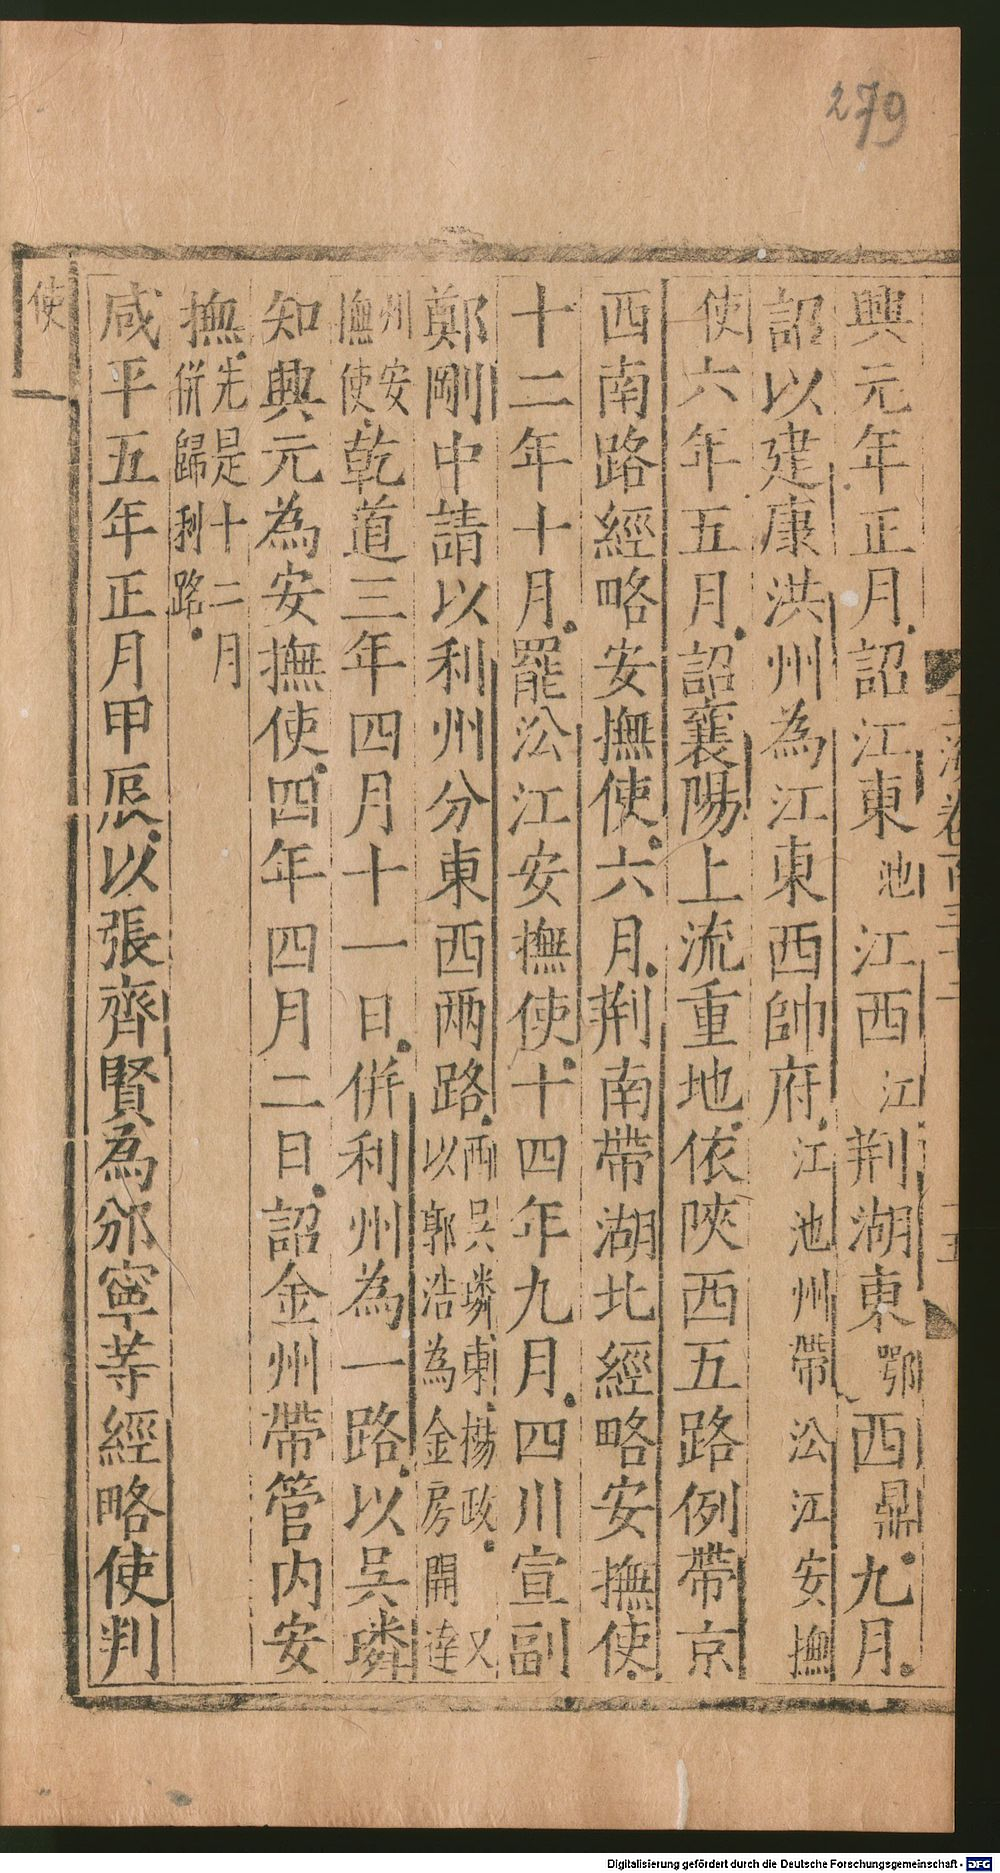 279
興元年正月詔江東池江西江荆湖東鄂西鼎九月
詔以建康洪州為江東西帥府江池州帶㳂江安撫
使六年五月詔襄陽上流重地依陝西五路例帶京
西南路經略安撫使六月荆南帶湖北經略安撫使
十二年十月罷㳂江安撫使十四年九月四川宣副
鄭剛中請以利州分東西两路西吳璘東楊政又
以郭浩為金房開達
州安
撫使乾道三年四月十一日併利州為一路以吳璘
知興元為安撫使四年四月二日詔金州帶管内安
撫先是十二月
併歸利路
咸平五年正月甲辰以張齊賢為邠寧等經略使判
使
Digitalisierung gefördert durch die Deutsche Forschungsgemeinschaft - DFG